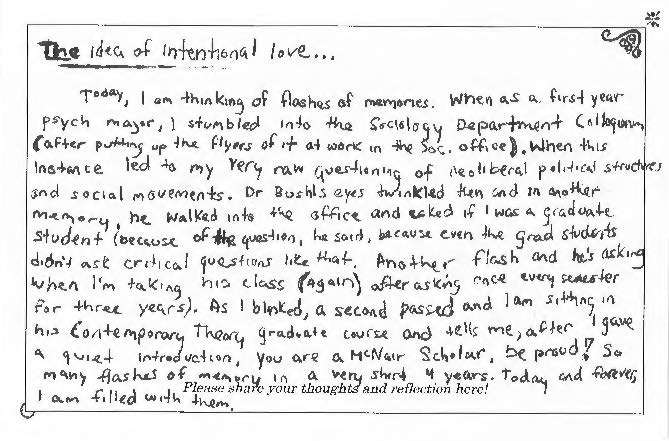 The idea of intentional love...
Today, I am thinking of flashes of memories. When as a first year
psych major, I stumbled into the Sociology Department Colloquium
(after putting up the flyers of it at work in the Soc. office). When this
instance led to my very raw questioning of neoliberal political structures
and social movements. Dr Bush's eyes twinkled then and in another
memory, he walked into the office and asked if I was a graduate
student (because of the question, he said, because even the grad students
didn't ask critical questions like that. Another flash and he's asking
when I'm taking his class (again) after asking once every semester
for three years). As I blinked, a second passed and I am sitting in
his Contemporary Theory graduate course and tells me, after I gave
a quiet introduction, you are a McNair Scholar, be proud! So
many flashes of memory in a very short 4 years. Today and forever,
Please share your thoughts and reflection here!
I am filled with them.